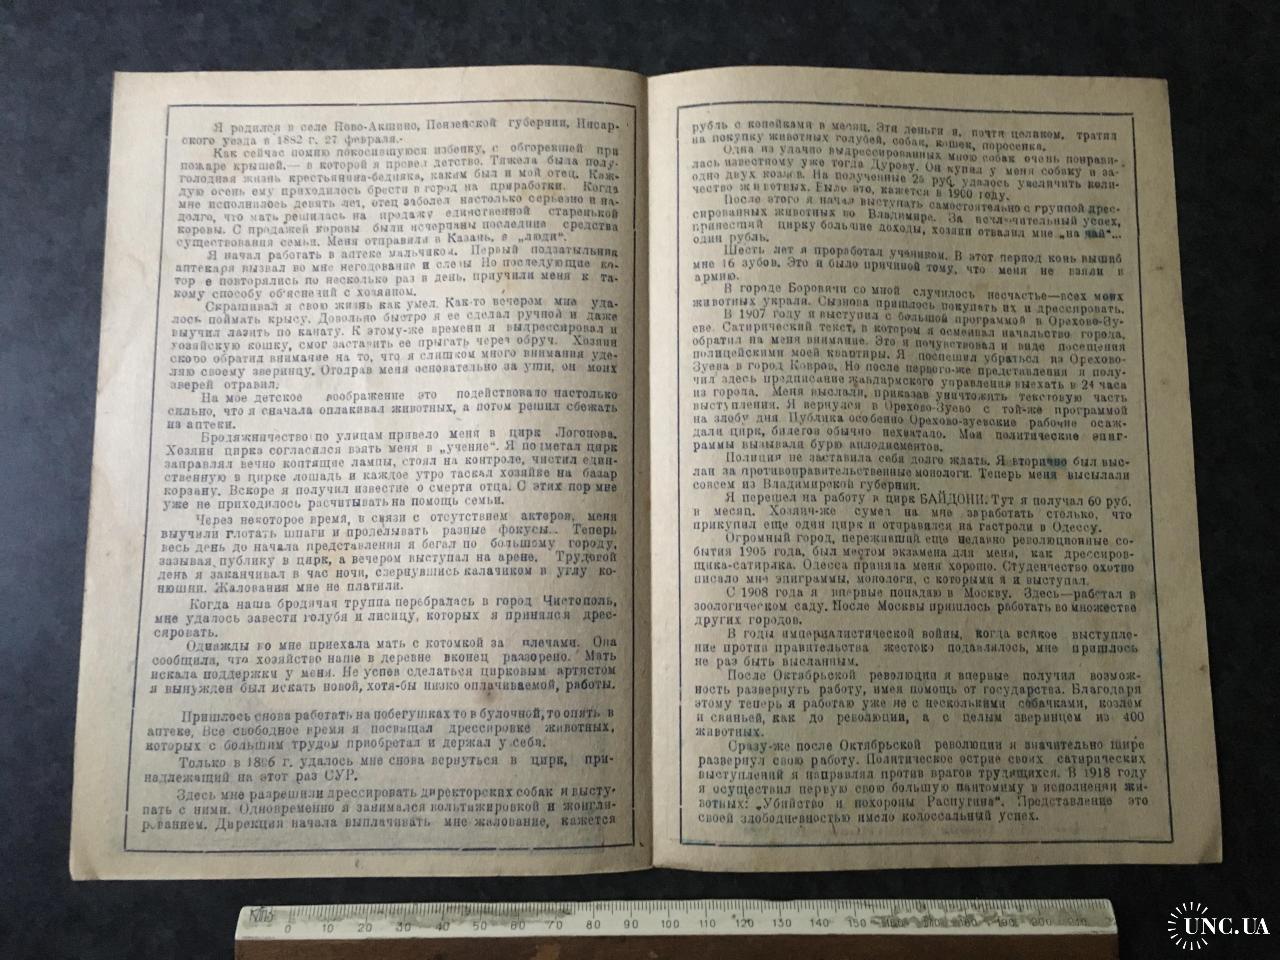 Я родился в селе Ново-Акшино, Пензейской губернии, Инсар-
ского уезда в 1882 г. 27 февраля.-
Как сейчас помню покосившуюся избенку, с обгоревшей при
пожаре крышей.— в которой я провел детство. Тяжела была полу-
голодная жизнь крестьянина-бедняка, каким был и мой отец. Каж-
дую осень ему приходилось брести в город на приработки. Когда
мне исполнилось девять лет, отец заболел настолько серьезно и на-
долго, что мать решилась на продажу единственной старенькой
коровы. С продажей коровы были исчерпаны последние средства
существования семьи. Меня отправили в Казань, в „люди".
Я начал работать в аптеке мальчиком. Первый подзатыльник
аптекаря вызвал во мне негодование и слезы Но последующие ко-
тор е повторялись по несколько раз в день, приучили меня к та-
кому способу об'яснений с хозяином.
Скрашивал я свою жизнь как умел. Как-то вечером мне уда-
лось поймать крысу. Довольно быстро я ее сделал ручной и даже
выучил лазить по канату. К этому-же времени я выдрессировал и
хозяйскую кошку, смог заставить ее прыгать через обруч. Хозяин
скоро обратил внимание на то, что я слишком много внимания уде-
ляю своему зверинцу. Отодрав меня основательно за уши, он моих
зверей отравил.
На мое детское воображение это подействовало настолько
сильно, что я сначала оплакивал животных, а потом решил сбежать
из аптеки.
Бродяжничество по улицам привело меня в цирк Логонова.
Хозяин цирка согласился взять меня в „учение". Я подметал цирк
заправлял вечно коптящие лампы, стоял на контроле, чистил един-
ственную в цирке лошадь и каждое утро таскал хозяйке на базар
корзину. Вскоре я получил известие о смерти отца. С этих пор мне
уже не приходилось расчитывать на помощь семьи.
Через некоторое время, в связи с отсутствием актеров, меня
выучили глотать шпаги и проделывать разные фокусы... Теперь
весь день до начала представления я бегал по большому городу,
зазывая публику в цирк, а вечером выступал на арене. Трудовой
день я заканчивал в час ночи, свернувшись калачиком в углу ко-
нюшни. Жалования мне не платили.
Когда наша бродячая труппа перебралась в город Чистополь,
мне удалось завести голубя и лисицу, которых я принялся дрес-
сировать.
Однажды ко мне приехала мать с котомкой за плечами. Она
сообщила, что хозяйство наше в деревне вконец разорено. Мать
искала поддержки у меня. Не успев сделаться цирковым артистом
я вынужден был искать новой, хотя-бы низко оплачиваемой, работы.
Пришлось снова работать на побегушках то в булочной, то опять в
аптеке, Все свободное время я посвящал дрессировке животных,
которых с большим трудом приобретал и держал у себя.
Только в 1896 г. удалось мне снова вернуться в цирк, при-
надлежащий на этот раз СУР.
Здесь мне разрешили дрессировать директорских собак и высту-
пать с ними. Одновременно я занимался вольтажировкой и жонгли-
рованием. Дирекция начала выплачивать мне жалование, кажется
рубль с копейками в месяц. Эти деньги я, почти целиком, тратил
на покупку животных голубей, собак, кошек, поросенка.
Одна из удачно выдрессированных мною собак очень понрави-
лась известному уже тогда Дурову. Он купил у меня собаку и за-
одно двух козлов. На полученные 25 руб. удалось увеличить коли-
чество животных. Было это, кажется в 1900 году.
После этого я начал выступать самостоятельно с группой дрес-
сированных животных во Владимире. За исключительный успех,
принесший цирку большие доходы, хозяин отвалил мне „на чай"...
один рубль.
Шесть лет я проработал учеником. В этот период конь вышиб
мне 16 зубов. Это и было причиной тому, что меня не взяли в
армию.
В городе Боровичи со мной случилось несчастье—всех моих
животных украли. Сызнова пришлось покупать их и дрессировать.
В 1907 году я выступил с большой программой в Орехово-Зу-
еве. Сатирический текст, в котором я осмеивал начальство города,
обратил на меня внимание. Это я почувствовал и виде посещения
полицейскими моей квартиры. Я поспешил убраться из Орехово-
Зуева в город Ковров. Но после первого-же представления я полу-
чил здесь предписание жандармского управления выехать в 24 часа
из города. Меня выслали, приказав уничтожить текстовую часть
выступления. Я вернулся в Орехово-Зуево с той-же программой
на злобу дня Публика особенно Орехово-зуевские рабочие осаж-
дали цирк, билетов обычно нехватало. Мои политические эпиг-
раммы вызывали бурю аплодисментов.
Полиция не заставила себя долго ждать. Я вторично был выс-
лан за противоправительственные монологи. Теперь меня высылали
совсем из Владимирской губернии.
Я перешел на работу в цирк БАЙДОНИ. Тут я получал 60 руб.
в месяц. Хозяин-же сумел на мне заработать столько, что
прикупил еще один цирк и отправился на гастроли в Одессу.
Огромный город, переживший еще недавно революционные со-
бытия 1905 года, был местом экзамена для меня, как дрессиров-
щика-сатирика. Одесса приняла меня хорошо. Студенчество охотно
писало мне эпиграммы, монологи, с которыми я и выступал.
С 1908 года я впервые попадаю в Москву. Здесь—работал в
зоологическом саду. После Москвы пришлось работать во множестве
других городов.
В годы империалистической войны, когда всякое выступле-
ние против правительства жестоко подавлялось, мне пришлось
не раз быть высланным.
После Октябрьской революции я впервые получил возмож-
ность развернуть работу, имея помощь от государства. Благодаря
этому теперь я работаю уже не с несколькими собачками, козлом
и свиньей, как до революции, а с целым зверинцем из 400
животных.
Сразу-же после Октябрьской революции я значительно шире
развернул свою работу. Политическое острие своих сатирических
выступлений я направлял против врагов трудящихся. В 1918 году
я осуществил первую свою большую пантомиму в исполнении жи-
вотных: „Убийство и похороны Распутина". Представление это
своей злободневностью имело колоссальный успех.
0 10 20 30 40 50 60 70 80 90 100 110 120 130 140 150
UNC.UA